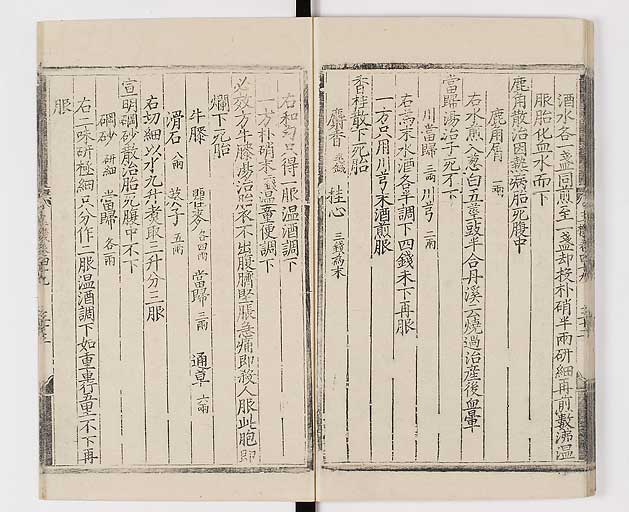 酒水各一盞同煎至一盞却投朴硝半兩研細再煎數沸溫
服胎化血水而下
鹿角散治因熱病胎死腹中
鹿角屑 一兩
右水煎入葱白五莖豉半合丹溪云燒過治産後血暈
當歸湯治子死不下
川當歸 二兩 川芎 二兩
右為末水酒各半調下四錢未下再服
一方只用川芎末酒煎服
香桂散下死胎
麝香 桂心 三錢為末
右和匀只得一服溫酒調下
一方朴硝末 溫童便調下
必效方牛膝湯治胎衣不出腹臍堅脹急痛即殺人服此胞即
爛下死胎
牛膝 瞿麥 各四兩 當歸 三兩 通草 六兩
滑石 八兩 葵子 五兩
右切細以水九升煮取三升分三服
宣明硇砂散治胎死腹中不下
硇砂 研細 當歸 各兩
右二味研極細只分作二服溫酒調下如重車行五里不下再
服